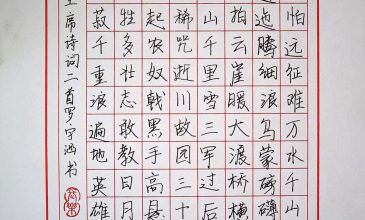 怕远征难万水千山
迤腾细浪乌蒙磅礴
拍云崖暖大渡桥横
山千里雪三军过后
稀咒逝川故园三十
起农奴戟黑手高悬
牲多壮志敢教日月
菽千重浪遍地英雄
席诗词二首罗宇鸿书